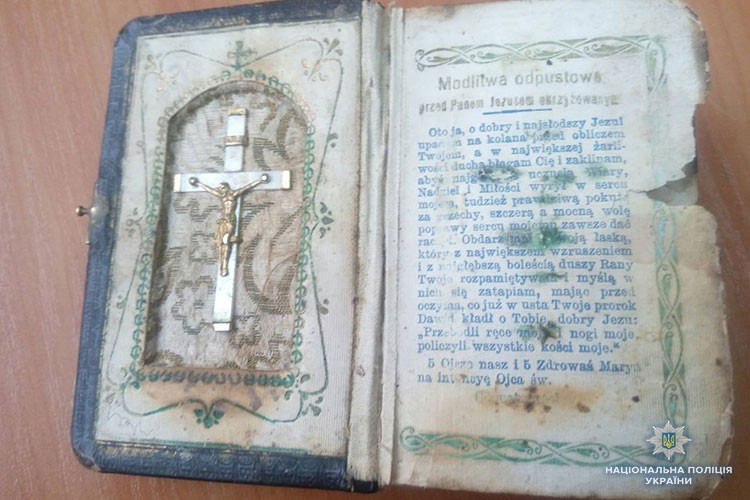 Modlitwa odpustowa
przed Panem Jezusem ukrzyżowanym
Oto ja, o dobry i najsłodszy Jezu!
upadam na kolana przed obliczem
Twojem, a w największej żarli-
wości ducha błagam Cię i zaklinam,
abyś uczucia Wiary,
Nadziei i Miłości wyrył w sercu
mojem, tudzież prawdziwą pokutę
za grzechy, szczerą a mocną wolę
poprawy sercu mojemu zawsze dać
raczył. Obdarz mnie Twoją łaską,
który z największem wzruszeniem
i z najgłębszą boleścią duszy Rany
Twoje rozpamiętywam i myślą w
nich się zatapiam, mając przed
oczyma, co już w usta Twoje prorok
Dawid kładł o Tobie, dobry Jezu:
„Przebodli ręce moje i nogi moje
policzyli wszystkie kości moje."
5 Ojcze nasz i 5 Zdrowaś Marya
na intencyę Ojca św.
НАЦІОНАЛЬНА ПОЛІЦІЯ
УКРАЇНИ